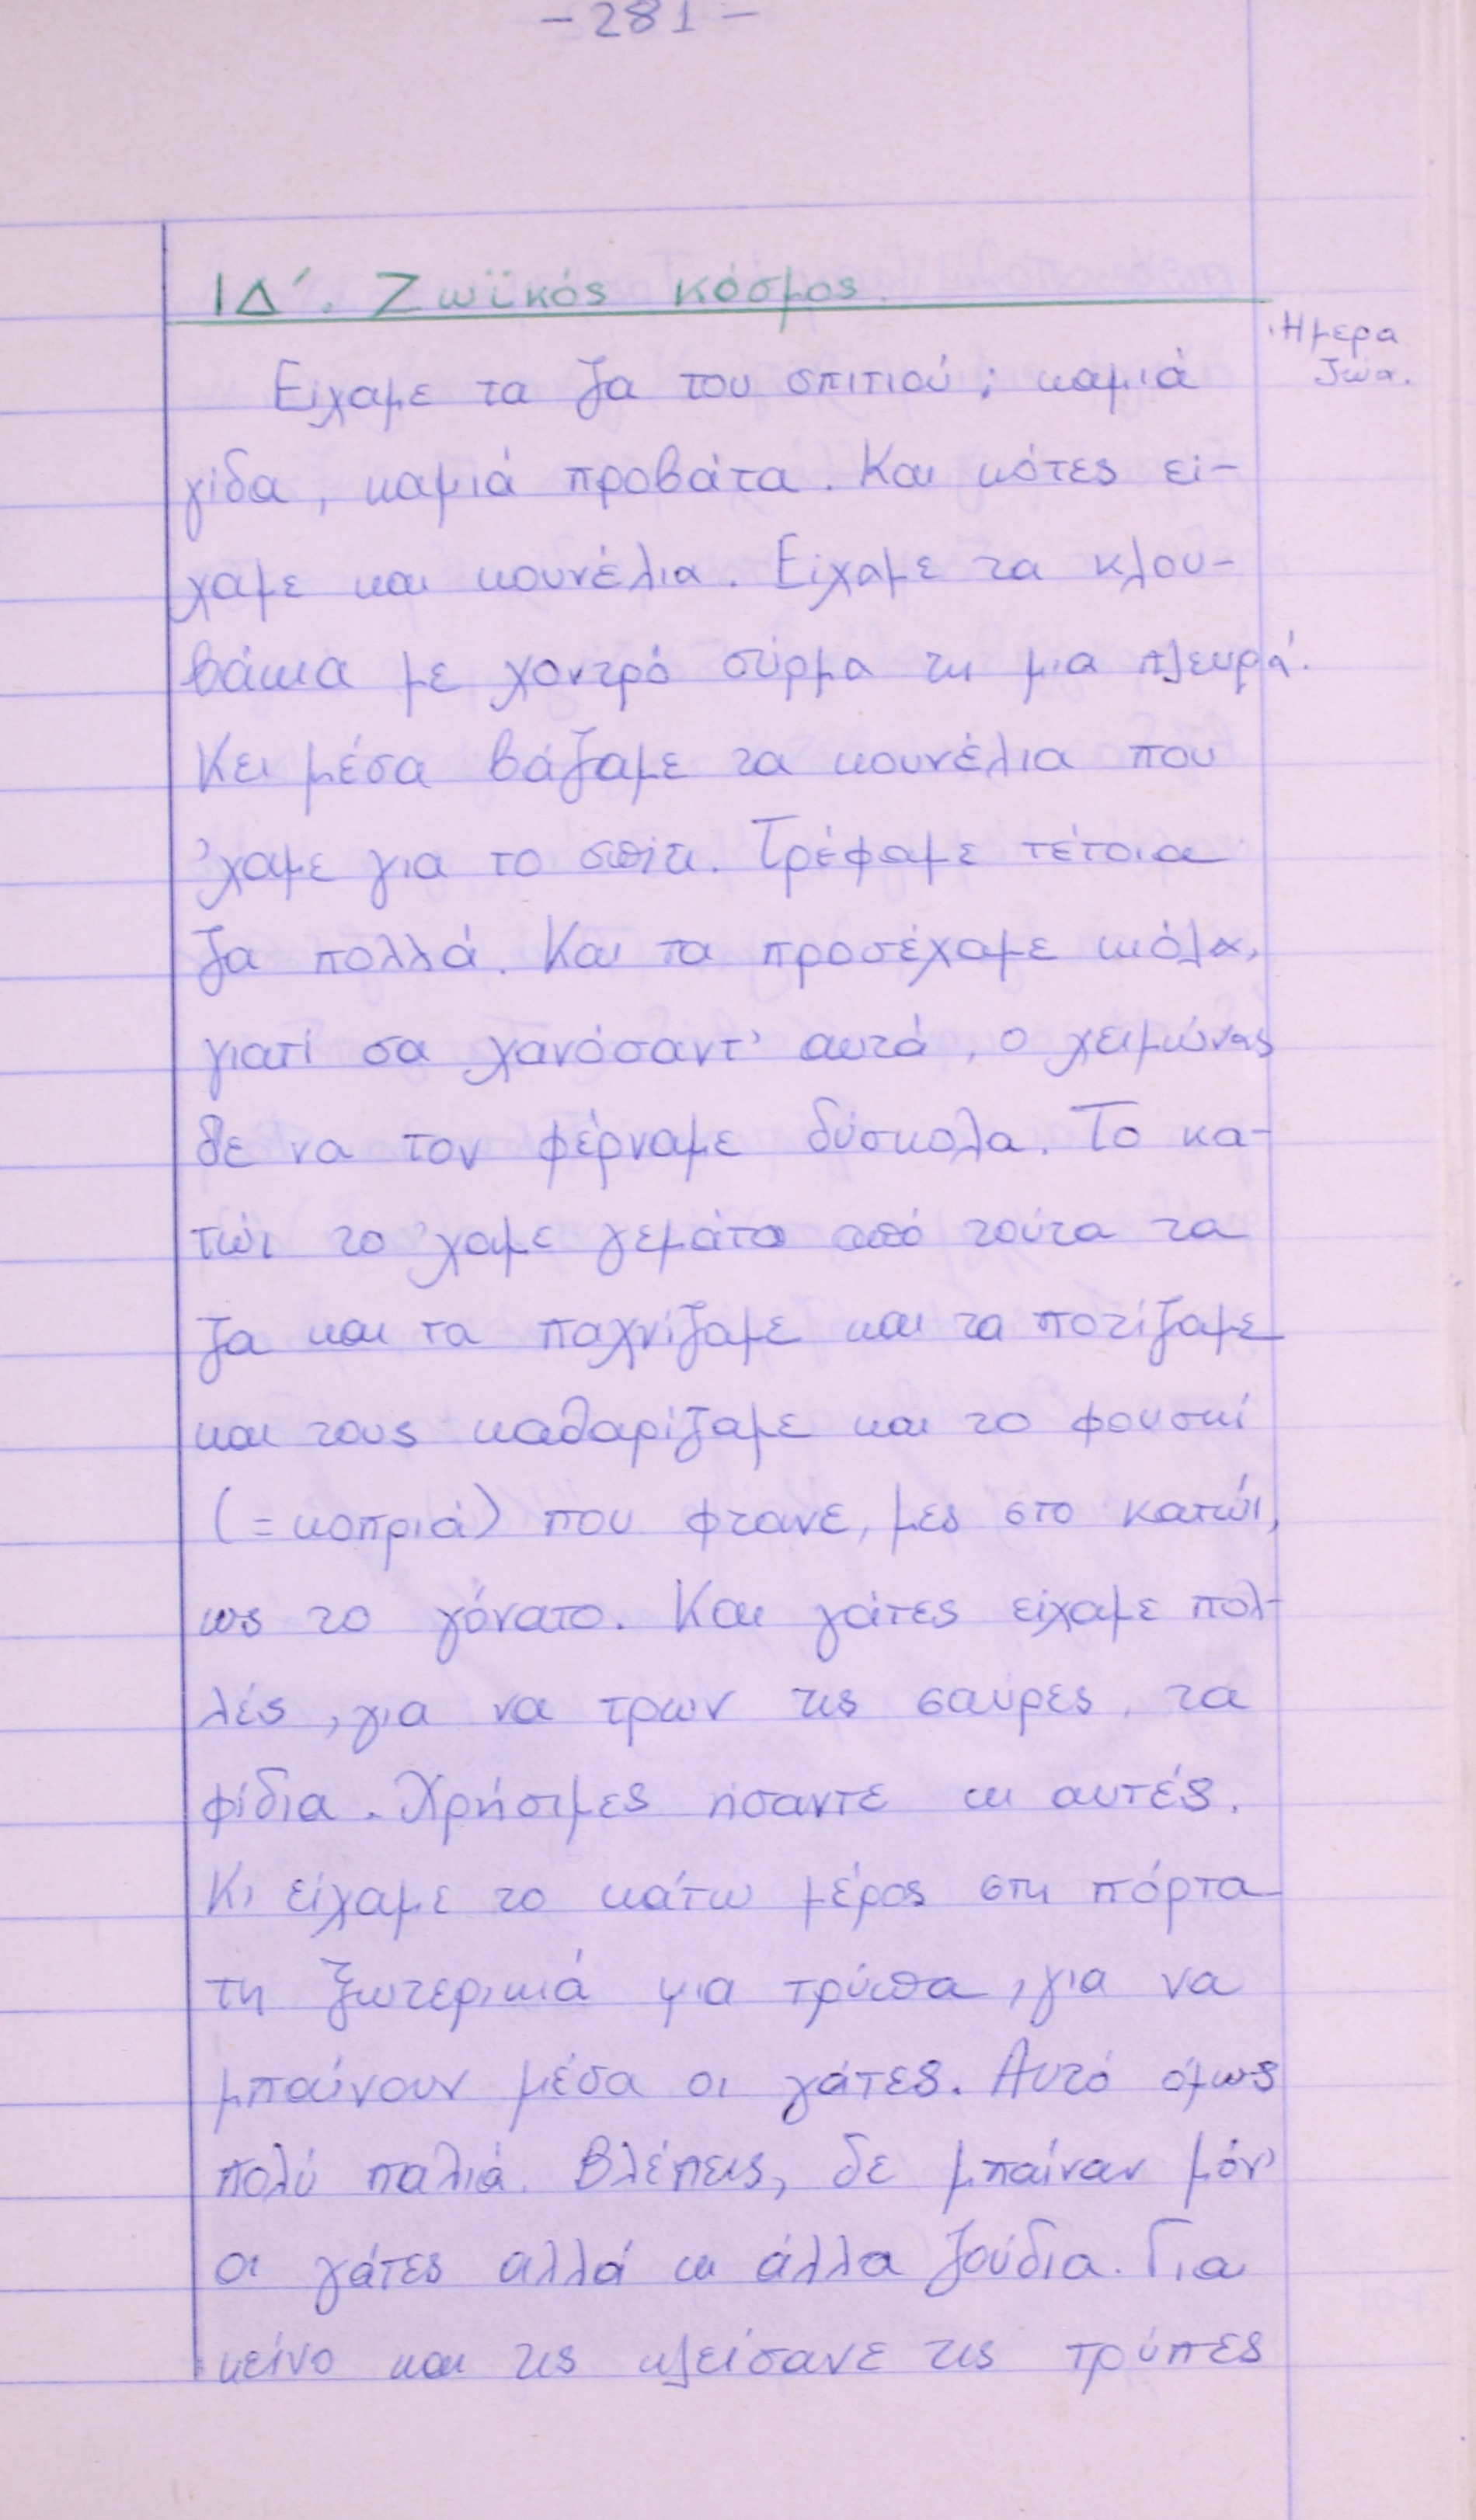 -281-
ΙΔ΄. Ζωϊκός κόσμος.
Ήμερα
ζώα.
Είχαμε τα ζα του σπιτιού; καμιά
γίδα, καμιά προβάτα. Και κότες εί-
χαμε και κουνέλια. Είχαμε τα κλου-
βάκια με χοντρό σύρμα τη μια πλευρά.
Κει μέσα βάζαμε τα κουνέλια που
'χαμε για το σπίτι. Τρέφαμε τέτοια
ζα πολλά. Και τα προσέχαμε κιόλα,
γιατί σα χανόσαντ' αυτά, ο χειμώνας
δε να τον φέρναμε δύσκολα. Το κα-
τώι το 'χαμε γεμάτο από τούτα τα
ζα και τα παχνίζαμε και τα ποτίζαμε
και τους καθαρίζαμε και το φουσκί
(=κοπριά) που φτανε, μες στο κατώι,
ως το γόνατο. Και γάτες είχαμε πολ-
λές, για να τρων τις σαύρες, τα
φίδια. Χρήσιμες ήσαντε κι αυτές.
Κι είχαμε το κάτω μέρος στη πόρτα
τη ξωτερικιά μια τρύπα, για να
μπαίνουν μέσα οι γάτες. Αυτό όμως
πολύ παλιά. Βλέπεις, δε μπαίναν μόν'
οι γάτες αλλά κι άλλα ζούδια. Για
κείνο και τις κλείσανε τις τρύπες